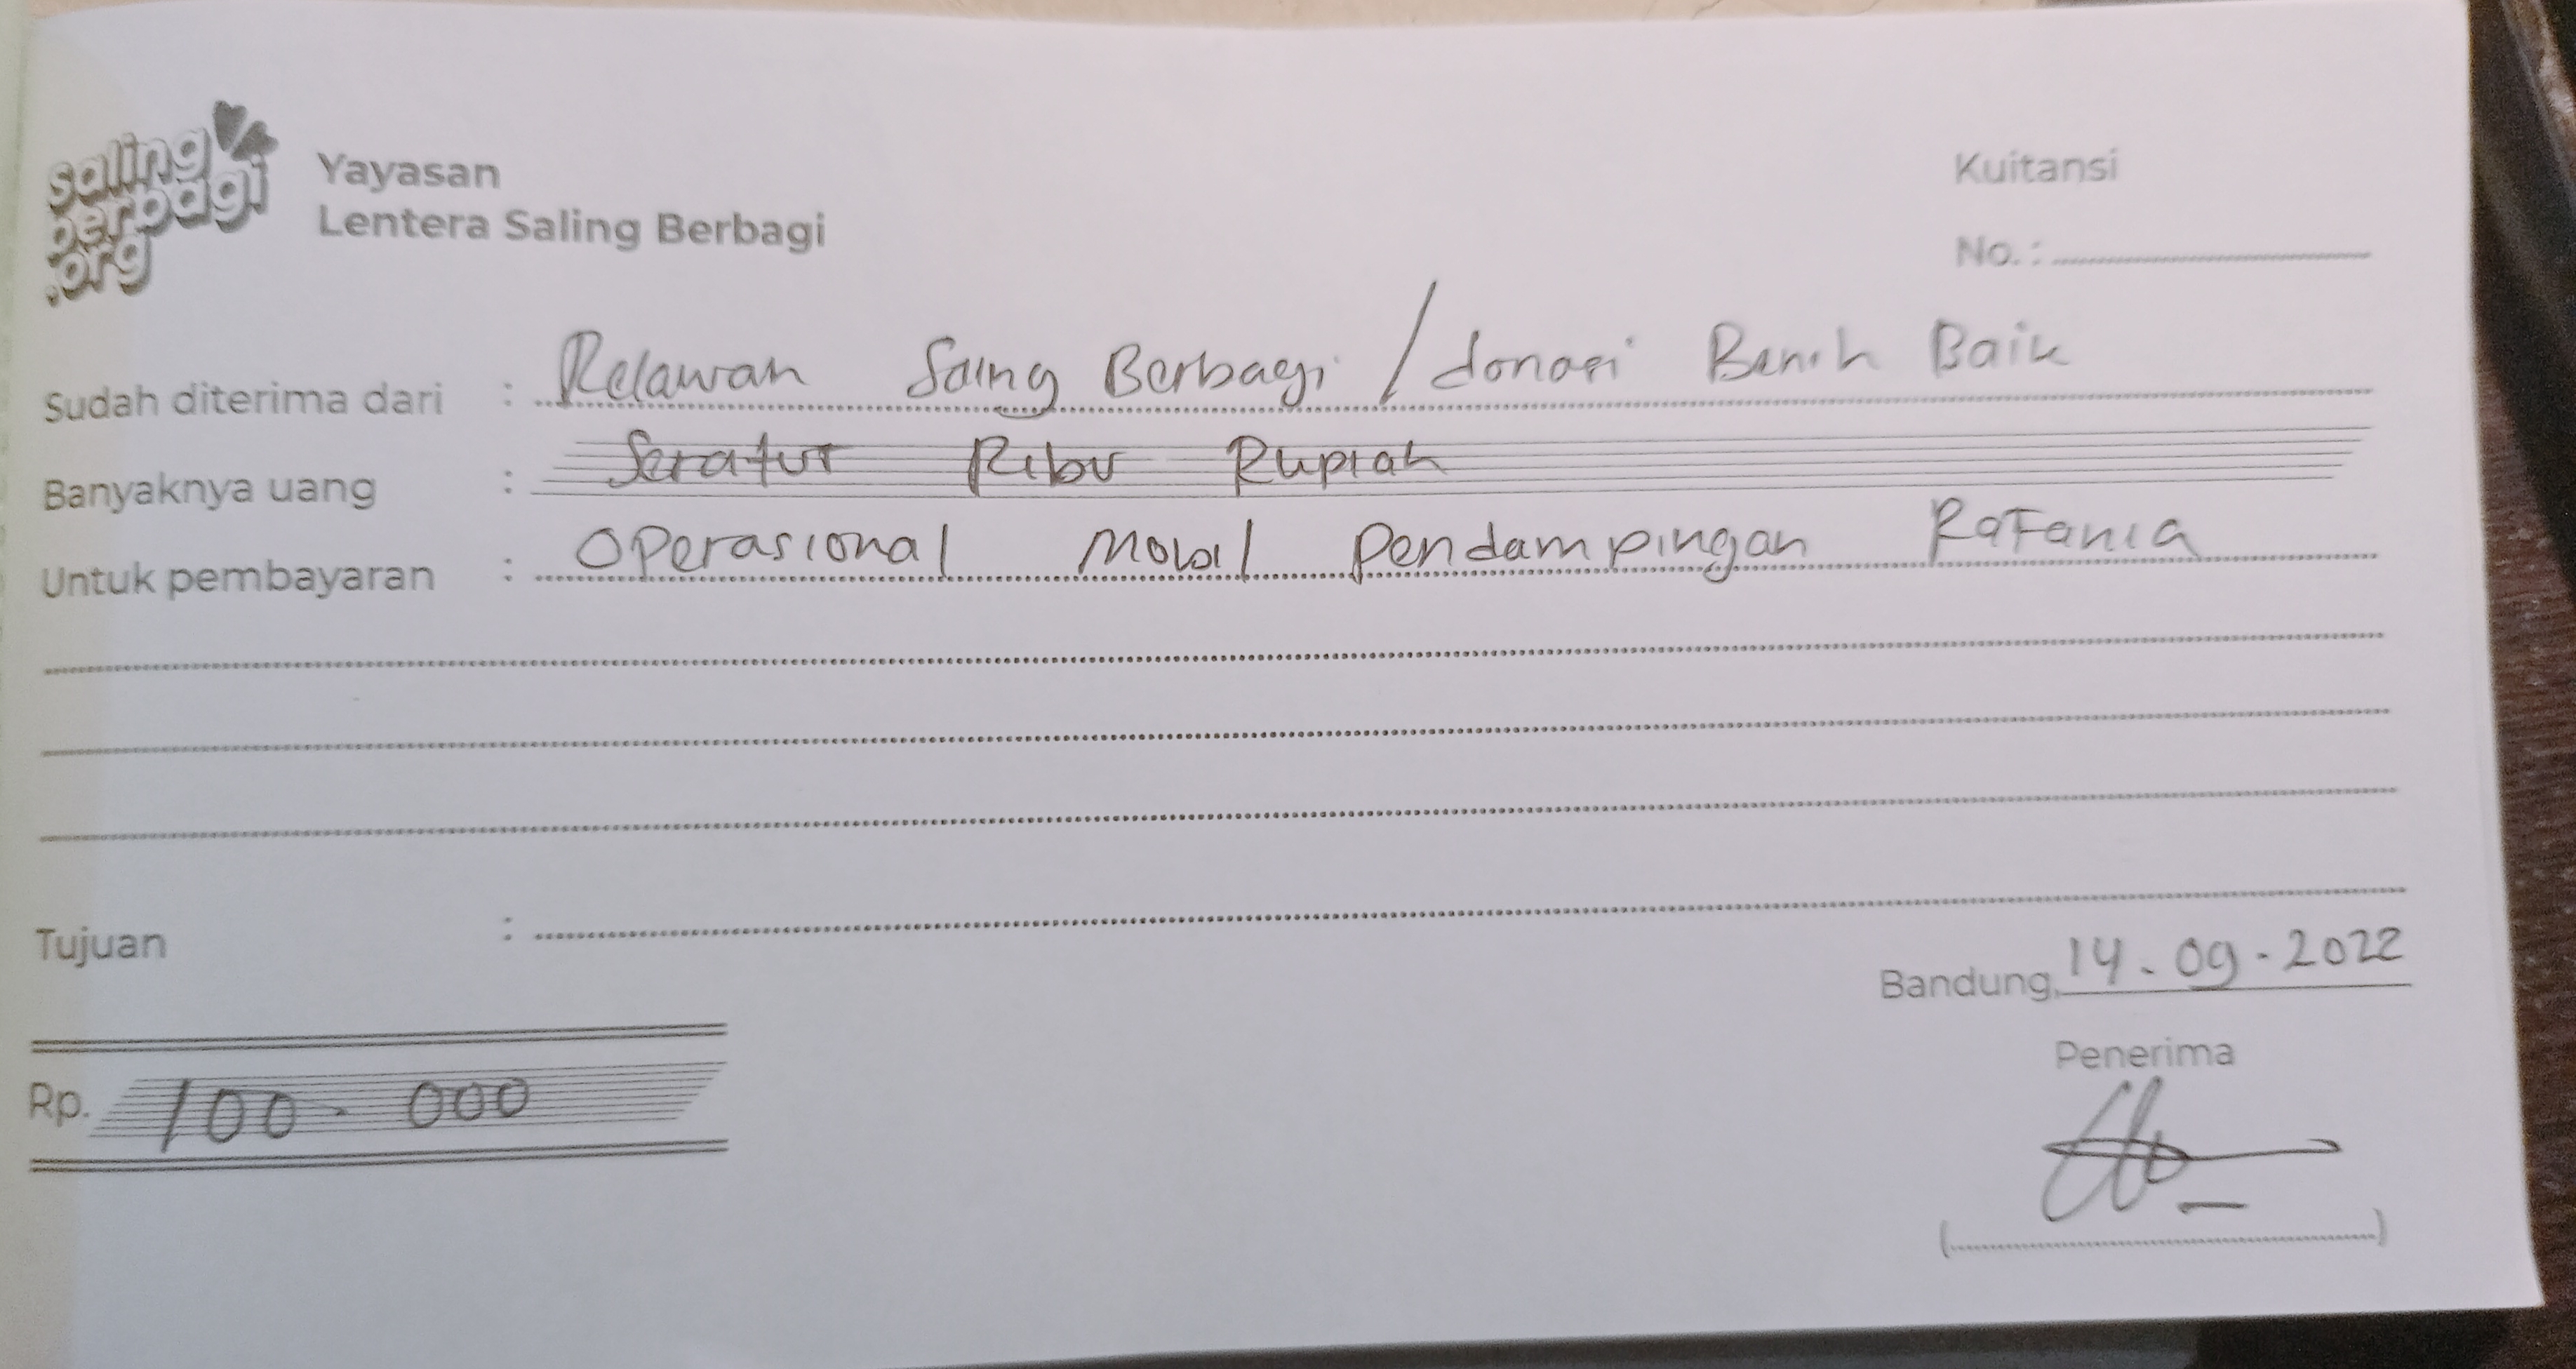 saling
berbagi
.org
Yayasan
Lentera Saling Berbagi
Kuitansi
No. :
Sudah diterima dari : Relawan Saling Berbagi / donasi Benih Baik
Banyaknya uang : Seratus Ribu Rupiah
Untuk pembayaran : Operasional Mobil Pendampingan Rafania
Tujuan :
Bandung, 14 - 09 - 2022
Rp. 100 - 000
Penerima
(....................)